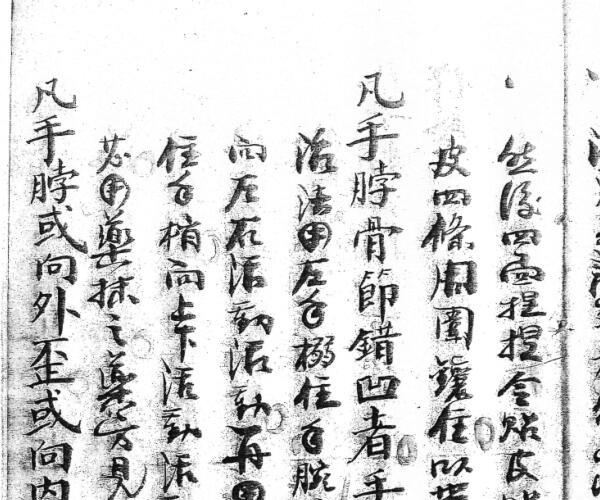 然後四面捏捏令貼皮
皮四條周圍住以
凡手脖骨節錯凹者手
治法用左手搦住手腕
向左右活動活動再用
住手梢向上下活動活
必用藥抹之藥方見
凡手脖或向外歪或向內